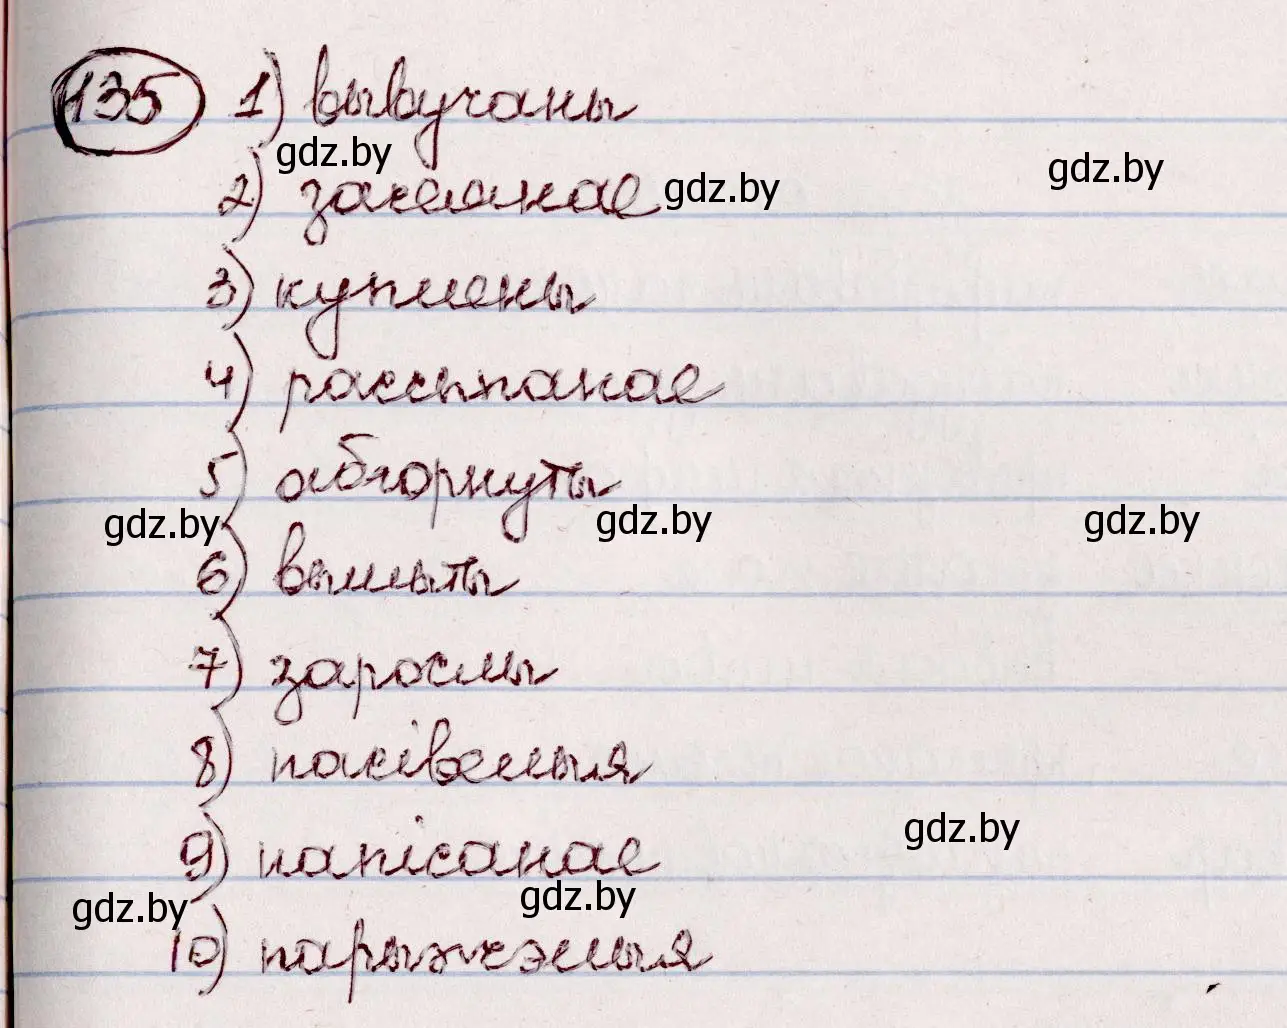 135 1) вывучаны
gdz.by gdz.by gdz.by
2) засеянае
3) куплены
4) рассыпанае
5) абгорнуты
gdz.by gdz.by gdz.by
6) вымыты
7) зарослы
8) пасівелыя
gdz.by
9) напісанае
gdz.by gdz.by
10) парыжэлыя